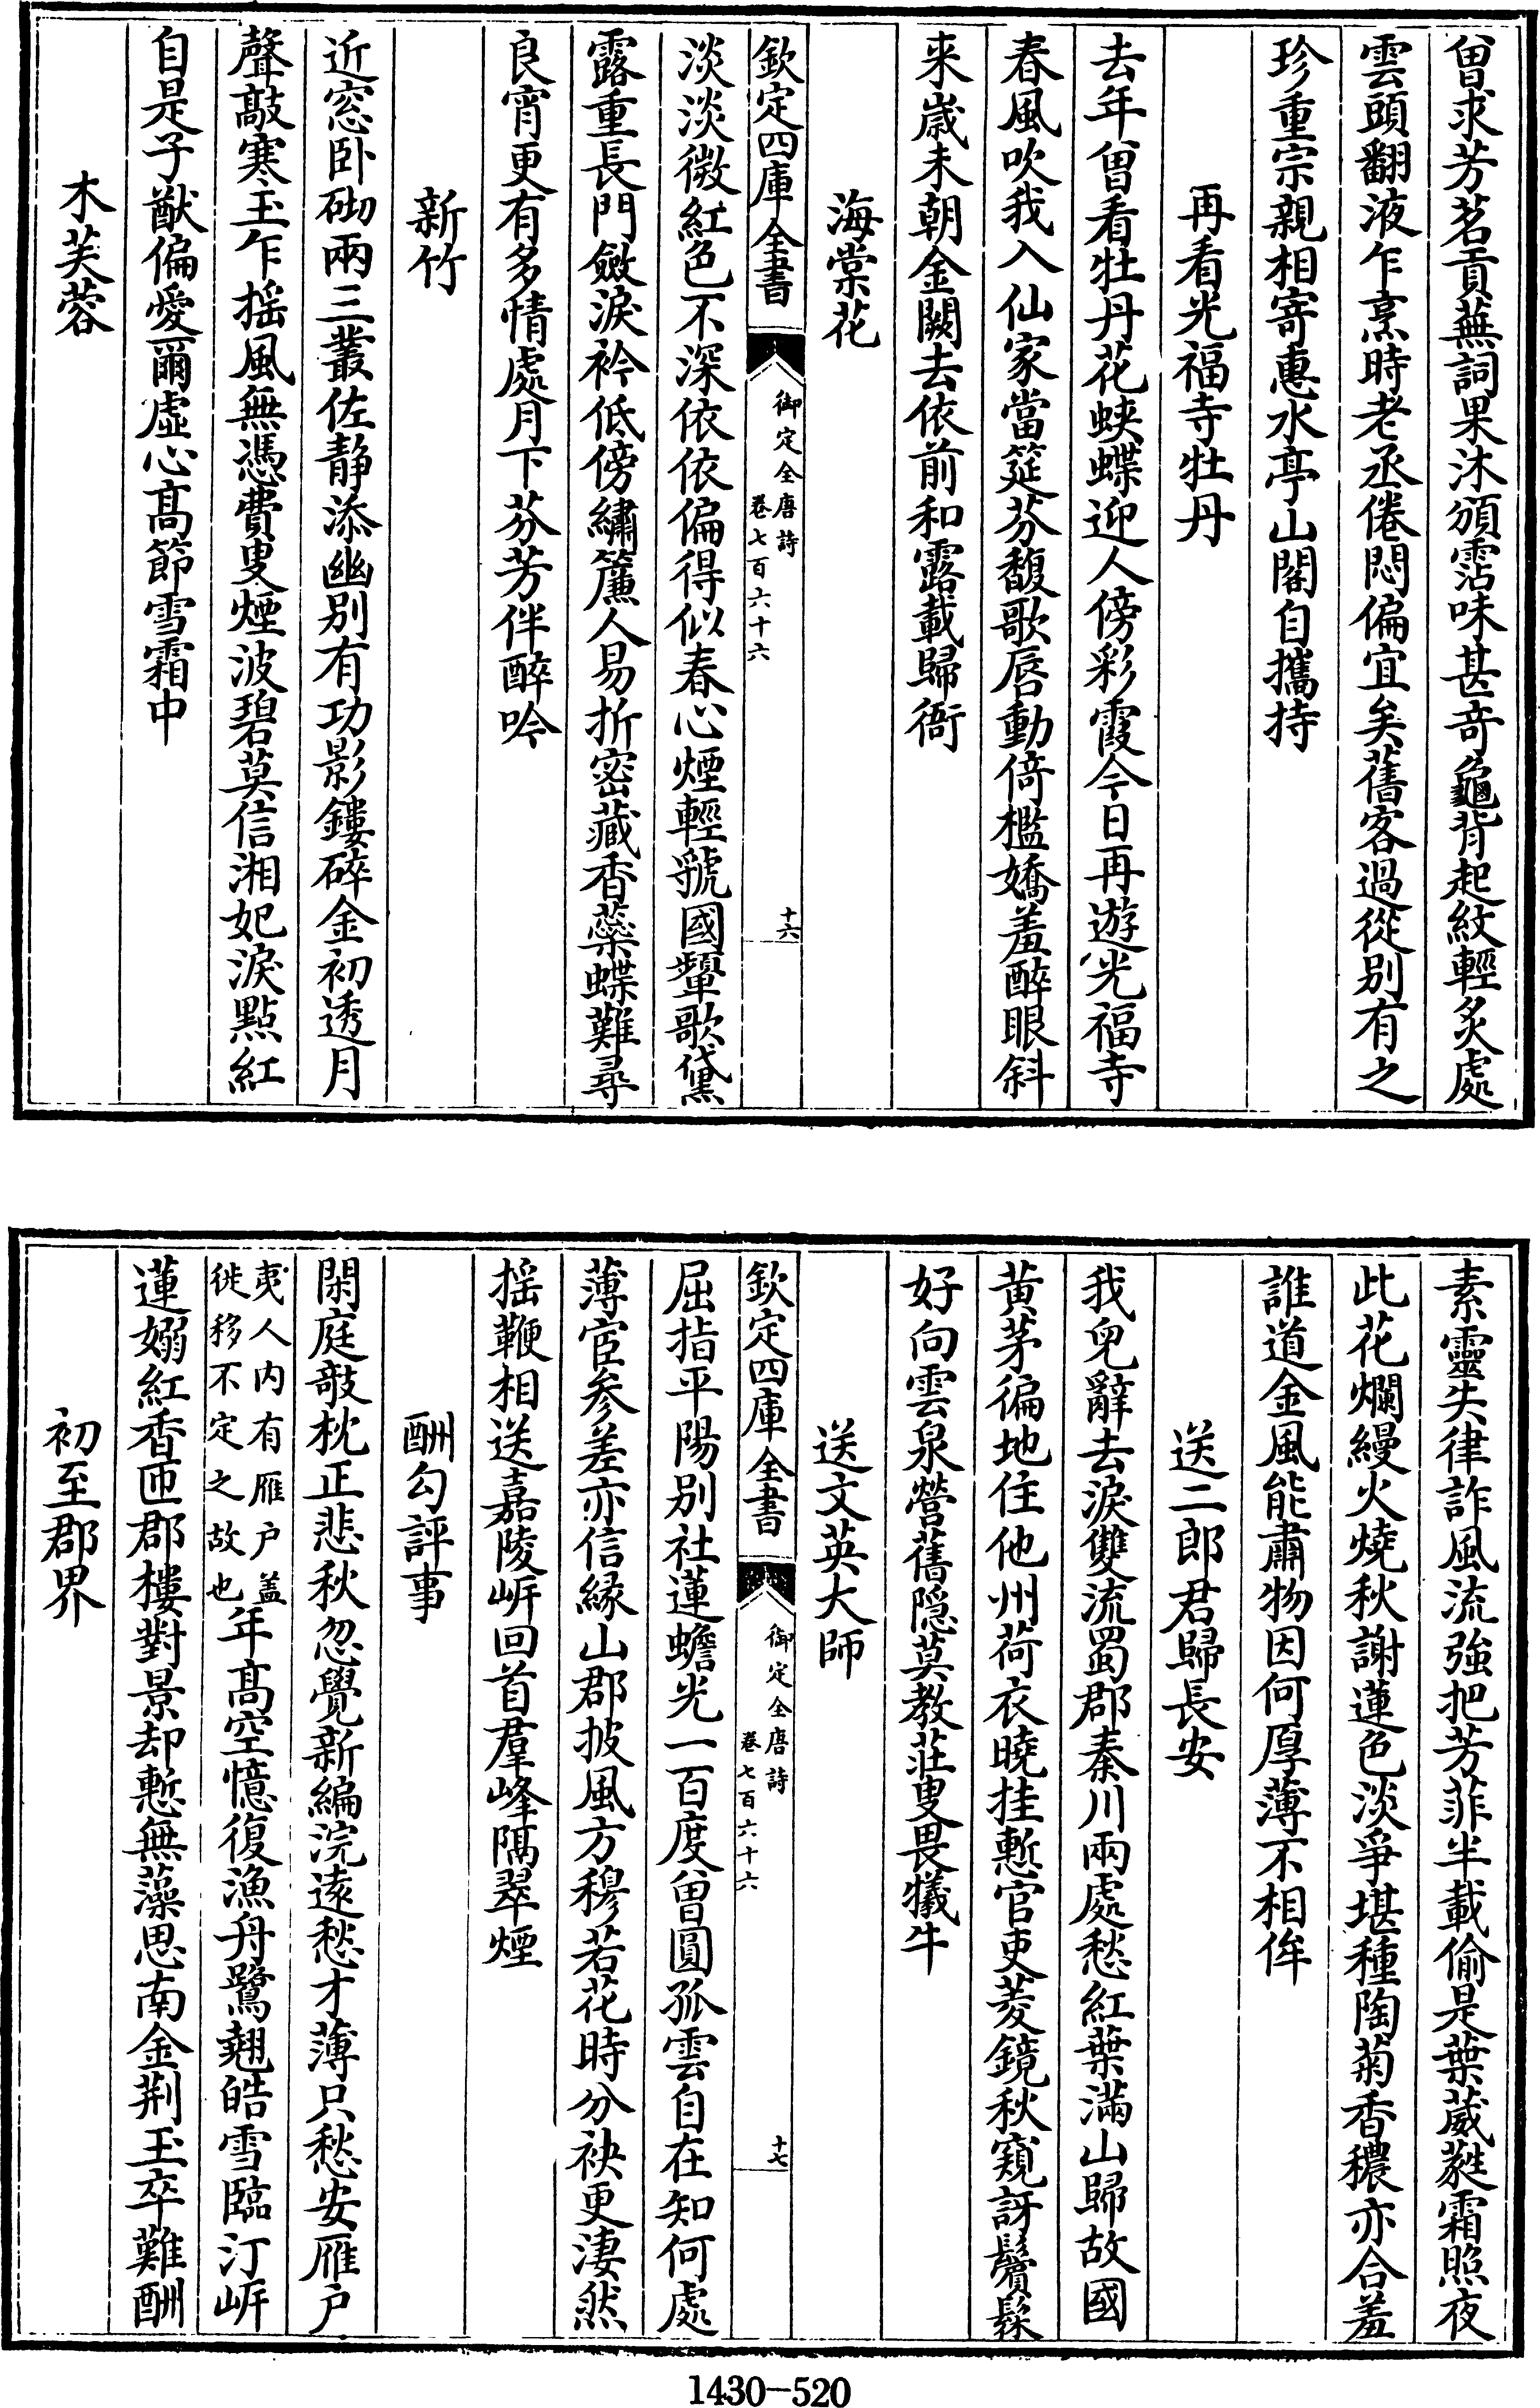 曽求芳茗貢蕪詞果沐頒霑味甚奇龜背起紋輕炙處
雲頭翻液乍烹時老丞倦悶偏宜矣舊客過從别有之
珍重宗親相寄惠水亭山閣自攜持
再看光福寺牡丹
去年曽看牡丹花蛺蝶迎人傍彩霞今日再遊光福寺
春風吹我入仙家當筵芬馥歌唇動倚檻嬌羞醉眼斜
来嵗未朝金闕去依前和露載歸衙
海棠花
欽定四庫全書
御定全唐詩
卷七百六十六
十六
淡淡微紅色不深依依偏得似春心煙輕虢國顰歌黛
露重長門斂淚衿低傍繡簾人易折密藏香蘂蝶難尋
良宵更有多情處月下芬芳伴醉吟
新竹
近窓卧砌兩三叢佐静添幽别有功影鏤碎金初透月
聲敲寒玉乍揺風無憑費叟煙波碧莫信湘妃淚點紅
自是子猷偏愛爾虚心髙節雪霜中
木芙蓉
素靈失律詐風流強把芳菲半載偷是葉葳蕤霜照夜
此花爛縵火燒秋謝蓮色淡爭堪種陶菊香穠亦合羞
誰道金風能肅物因何厚薄不相侔
送二郎君歸長安
我皃辭去淚雙流蜀郡秦川兩處愁紅葉滿山歸故國
黄茅徧地住他州荷衣曉挂慙官吏菱鏡秋窺訝鬢髹
好向雲泉營舊隠莫教莊叟畏犠牛
送文英大師
欽定四庫全書
御定全唐詩
卷七百六十六
十七
屈指平陽别社蓮蟾光一百度曽圓孤雲自在知何處
薄宦參差亦信縁山郡披風方穆若花時分袂更淒然
揺鞭相送嘉陵岍回首羣峰隔翠煙
酬勾評事
閑庭敧枕正悲秋忽覺新編浣逺愁才薄只愁安雁户
夷人内有雁户盖
徙移不定之故也
年髙空憶復漁舟鷺翹皓雪臨汀岍
蓮嫋紅香匝郡樓對景却慙無藻思南金荆玉卒難酬
初至郡界
1430—520